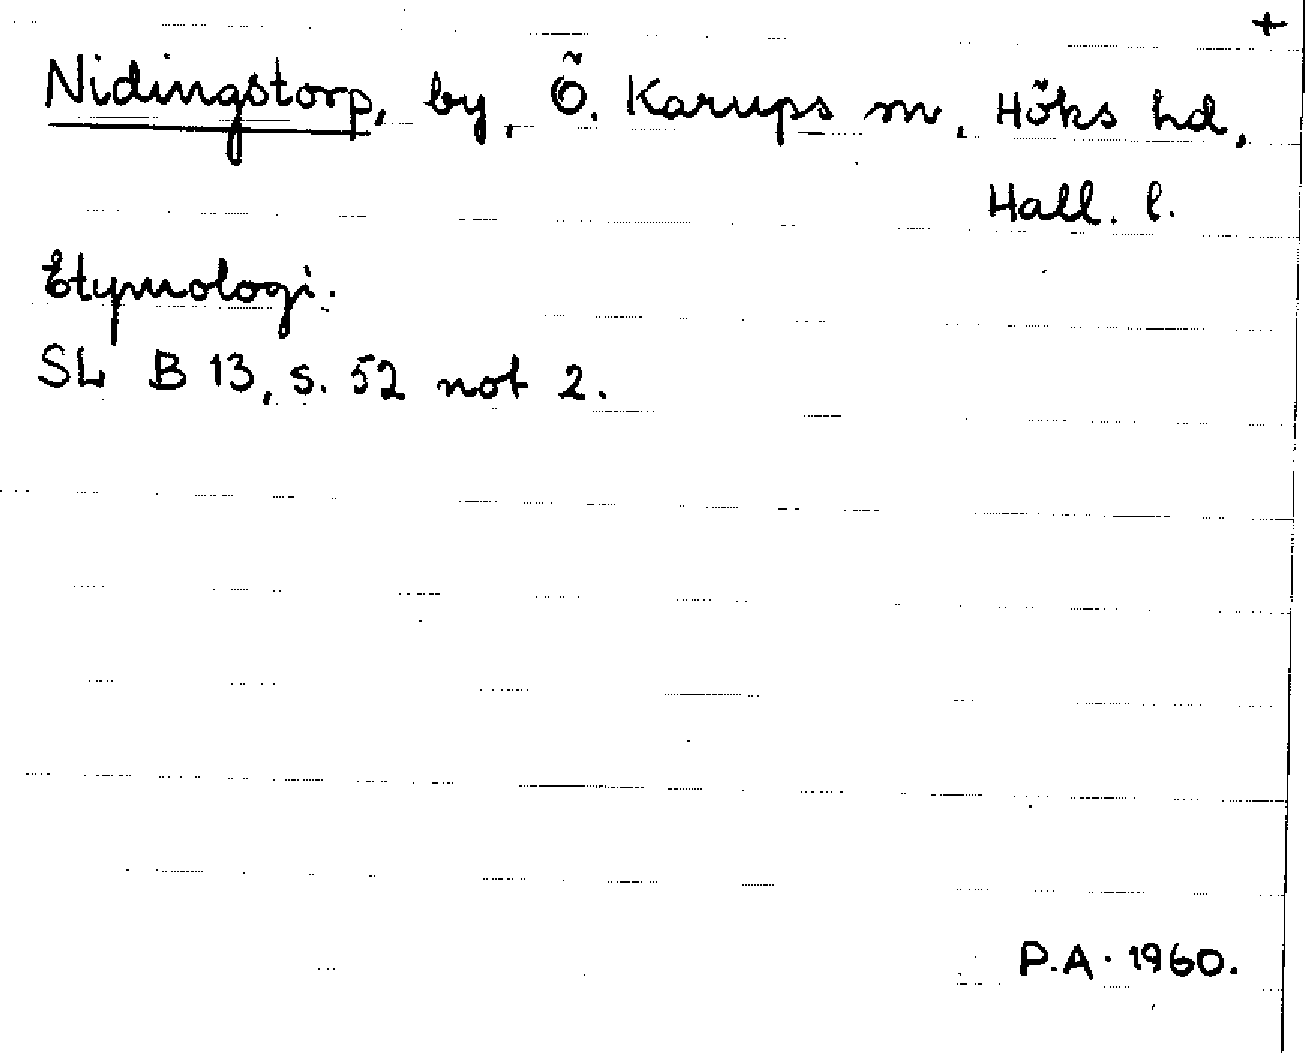 +
Nidingstorp, by, Ö. Karups sn, Höks hd,
Hall. l.
Etymologi.
SL B 13, s. 52 not 2.
P.A. 1960.